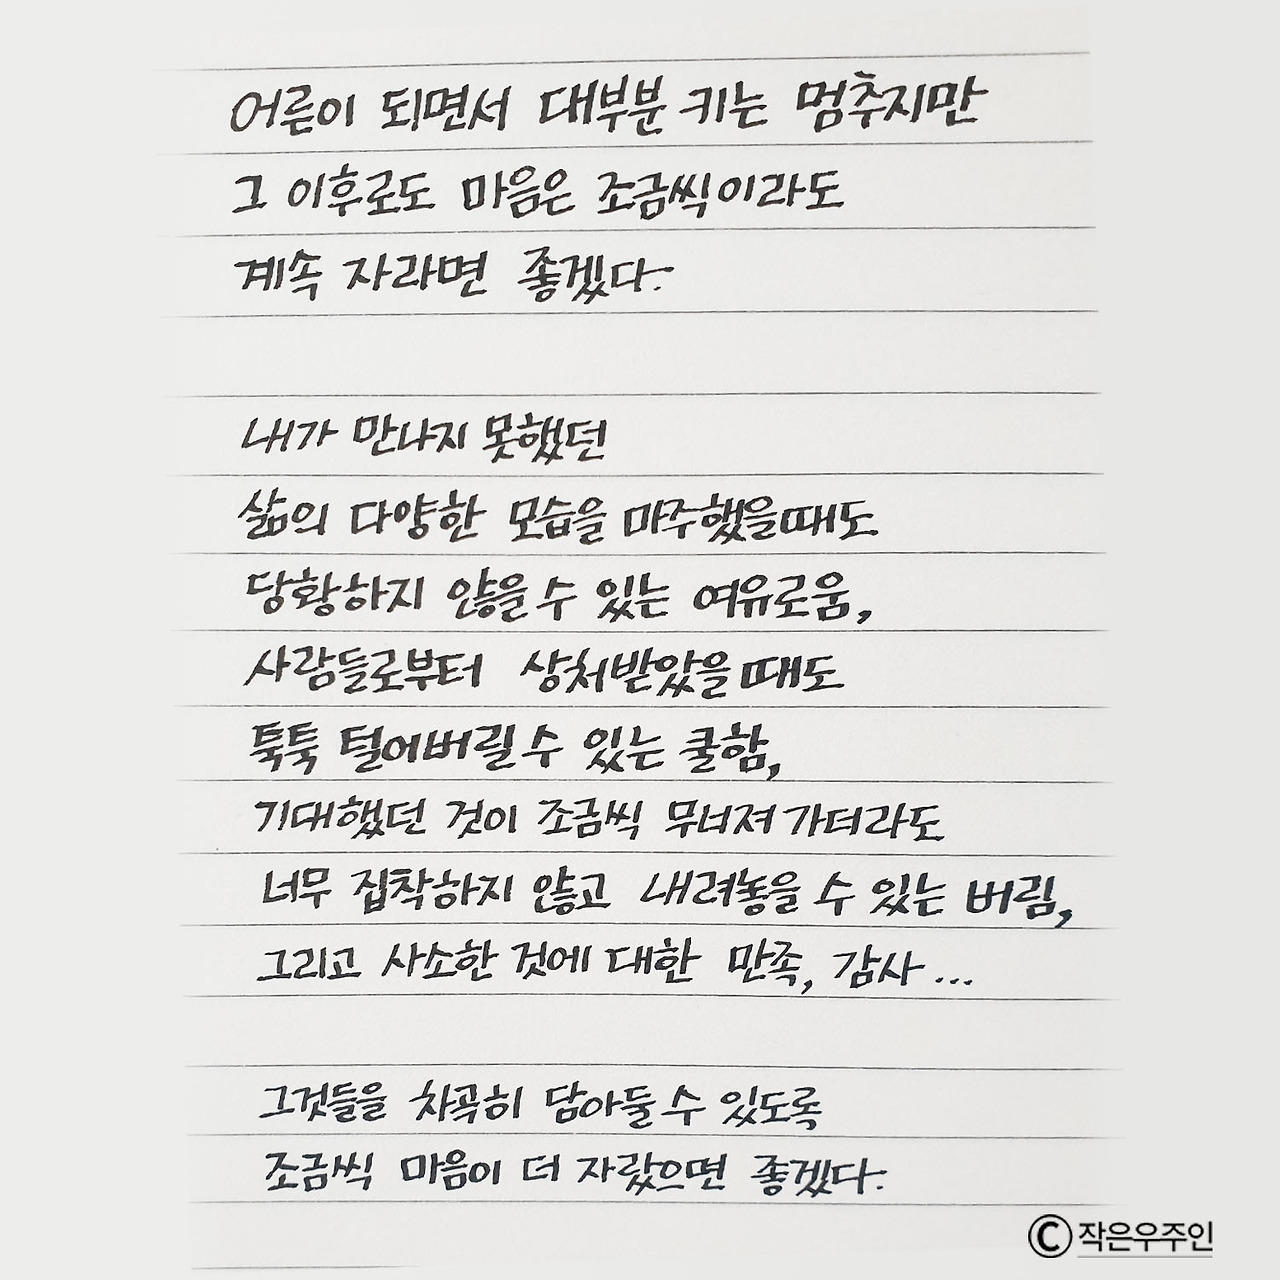 어른이 되면서 대부분 키는 멈추지만
그 이후로도 마음은 조금씩이라도
계속 자라면 좋겠다.
내가 만나지 못했던
삶의 다양한 모습을 마주했을때도
당황하지 않을 수 있는 여유로움,
사람들로부터 상처받았을때도
툭툭 털어버릴 수 있는 쿨함,
기대했던 것이 조금씩 무너져 가더라도
너무 집착하지 않고 내려놓을 수 있는 버림,
그리고 사소한 것에 대한 만족, 감사...
그것들을 차곡히 담아둘 수 있도록
조금씩 마음이 더 자랐으면 좋겠다.
ⓒ작은우주인